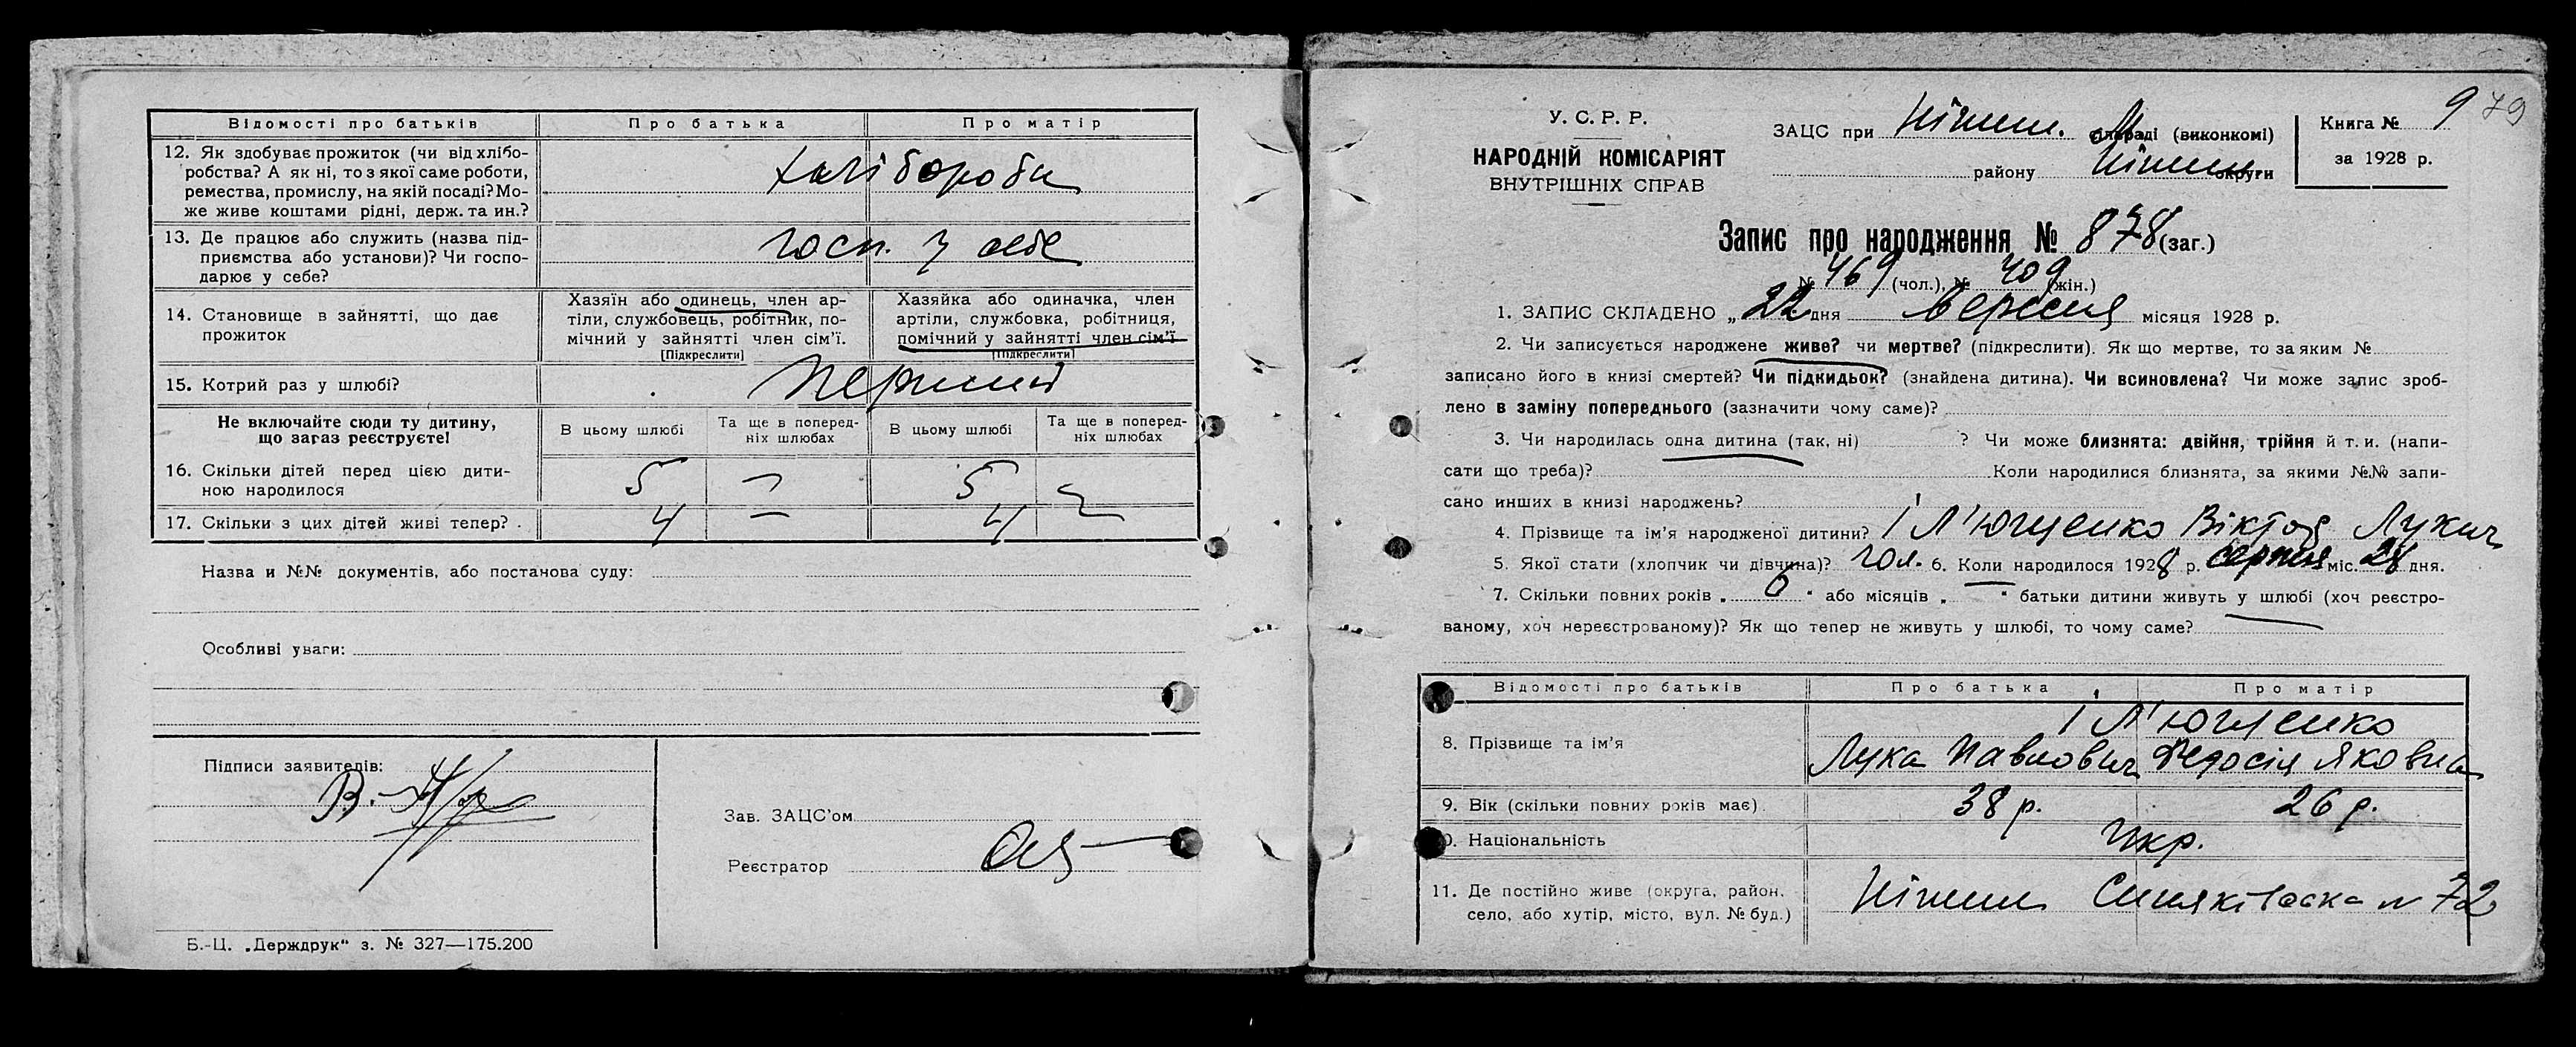 Відомості про батьків Про батька Про матір
12. Як здобуває прожиток (чи від хлібо-
робства? А як ні, то з якої саме роботи,
ремества, промислу, на якій посаді? Мо-
же живе коштами рідні, держ. та ин.?
хлібороби
13. Де працює або служить (назва під-
приємства або установи)? Чи госпо-
дарює у себе?
госп. у себе
14. Становище в зайнятті, що дає
прожиток
Хазяїн або одинець, член ар-
тіли, службовець, робітник, по-
мічний у зайнятті член сім'ї.
[Підкреслити]
Хазяйка або одиначка, член
артіли, службовка, робітниця,
помічний у зайнятті член сім'ї
[Підкреслити]
15. Котрий раз у шлюбі? Перший
Не включайте сюди ту дитину,
що зараз реєструєте!
В цьому шлюбі
Та ще в поперед-
ніх шлюбах
В цьому шлюбі
Та ще в поперед-
ніх шлюбах
16. Скільки дітей перед цією дити-
ною народилося
5 — 5 —
17. Скільки з цих дітей живі тепер? . 4 — 4 —
Назва и №№ документів, або постанова суду:
Особливі уваги:
Підписи заявителів:
Зав. ЗАЦС'ом
Реєстратор
Б.-Ц. „Держдрук“ з. № 327—175.200
У. С. Р. Р.
НАРОДНІЙ КОМІСАРІЯТ
ВНУТРІШНІХ СПРАВ
ЗАЦС при Ніжин. сільраді (виконкомі)
району Ніжин округи
Книга № 9
за 1928 р.
979
Запис про народження № 878 (заг.)
№ 469 (чол.), № 409 (жін.)
1. ЗАПИС СКЛАДЕНО „22 дня вересня місяця 1928 р.
2. Чи записується народжене живе? чи мертве? (підкреслити). Як що мертве, то за яким №
записано його в книзі смертей? Чи підкидьок? (знайдена дитина). Чи всиновлена? Чи може запис зроб-
лено в заміну попереднього (зазначити чому саме)?
3. Чи народилась одна дитина (так, ні) ? Чи може близнята: двійня, трійня й т. и. (напи-
сати що треба)? Коли народилися близнята, за якими №№ запи-
сано инших в книзі народжень?
4. Прізвище та ім'я народженої дитини? Іл'ющенко Віктор Лукич
5. Якої стати (хлопчик чи дівчина)? чол. 6. Коли народилося 1928 р. серпня міс. 28 дня.
7. Скільки повних років „ 6 “ або місяців „ — “ батьки дитини живуть у шлюбі (хоч реєстро-
ваному, хоч нереєстрованому)? Як що тепер не живуть у шлюбі, то чому саме?
Відомості про батьків Про батька Про матір
8. Прізвище та ім'я
Іл'ющенко
Лука Павлович Федосія Яковна
9. Вік (скільки повних років має) 38 р. 26 р.
10. Національність Укр.
11. Де постійно живе (округа, район,
село, або хутір, місто, вул. № буд.)
Ніжин Синяківська № 72